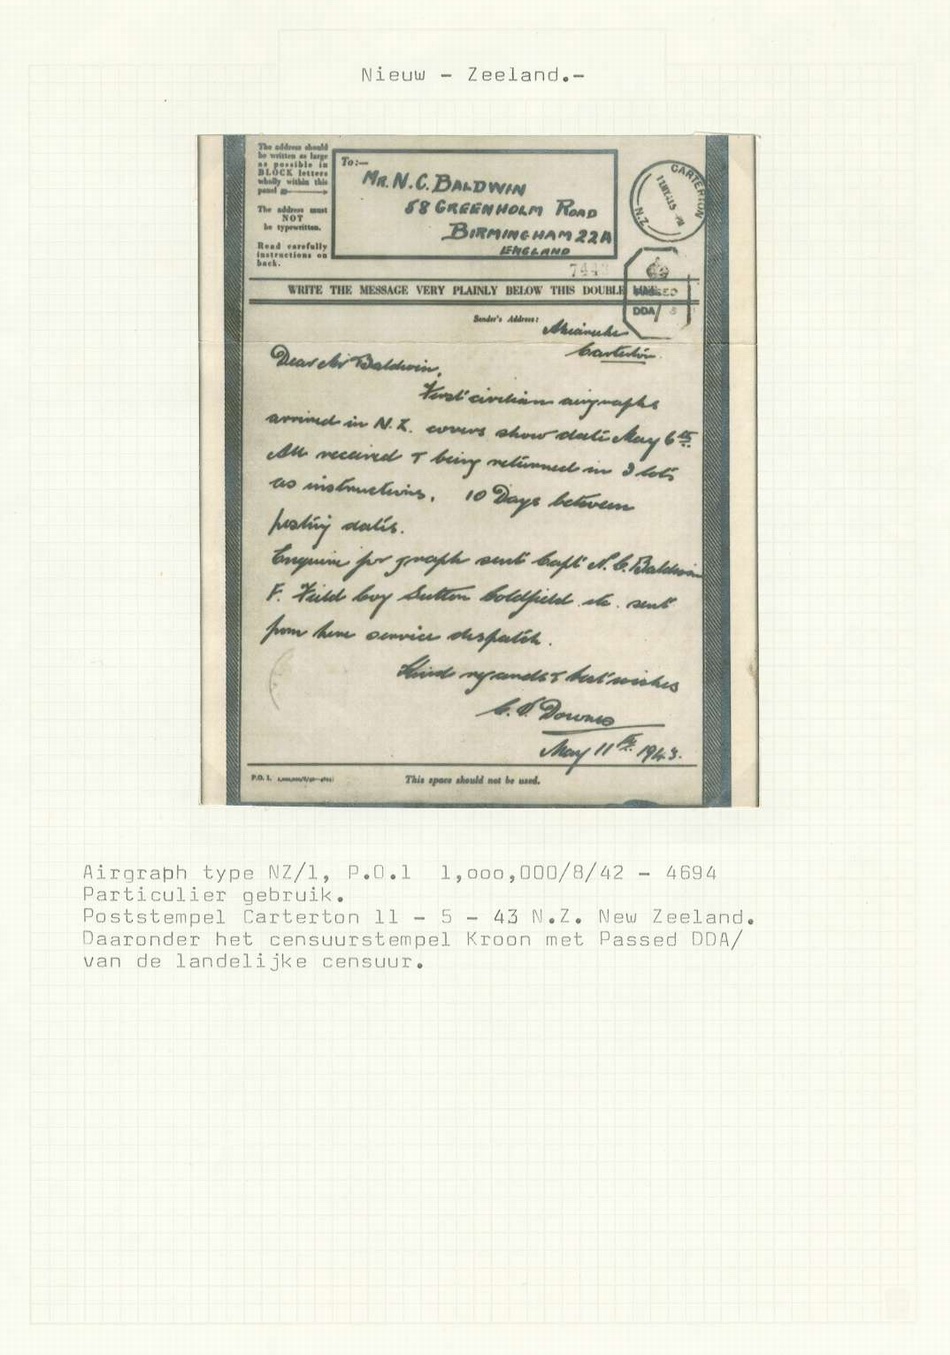 Nieuw - Zeeland.-
The address should
be written as large
as possible in
BLOCK letters
wholly within this
panel
The address must
NOT
be typewritten.
Read carefully
instructions on
back.
To:—
MR. N.C. BALDWIN
58 GREENHOLM ROAD
BIRMINGHAM 22A
ENGLAND
CARTERTON
N.Z.
744
WRITE THE MESSAGE VERY PLAINLY BELOW THIS DOUBLE
PASSED
DDA/
Sender's Address:
Carterton
Dear Mr Baldwin,
First civilian airgraphs
arrived in N.Z. covers show date May 6th
All received & being returned in 3 lots
as instructions. 10 Days between
posting dates.
Enquire for graph sent Capt N. C. Baldwin
F. Feild Coy Sutton Coldfield etc. sent
from here service despatch.
Kind regards & best wishes
Downes
May 11th 1943.
P.O. 1.
This space should not be used.
Airgraph type NZ/1, P.O.1 1,ooo,000/8/42 - 4694
Particulier gebruik.
Poststempel Carterton 11 - 5 - 43 N.Z. New Zeeland.
Daaronder het censuurstempel Kroon met Passed DDA/
van de landelijke censuur.